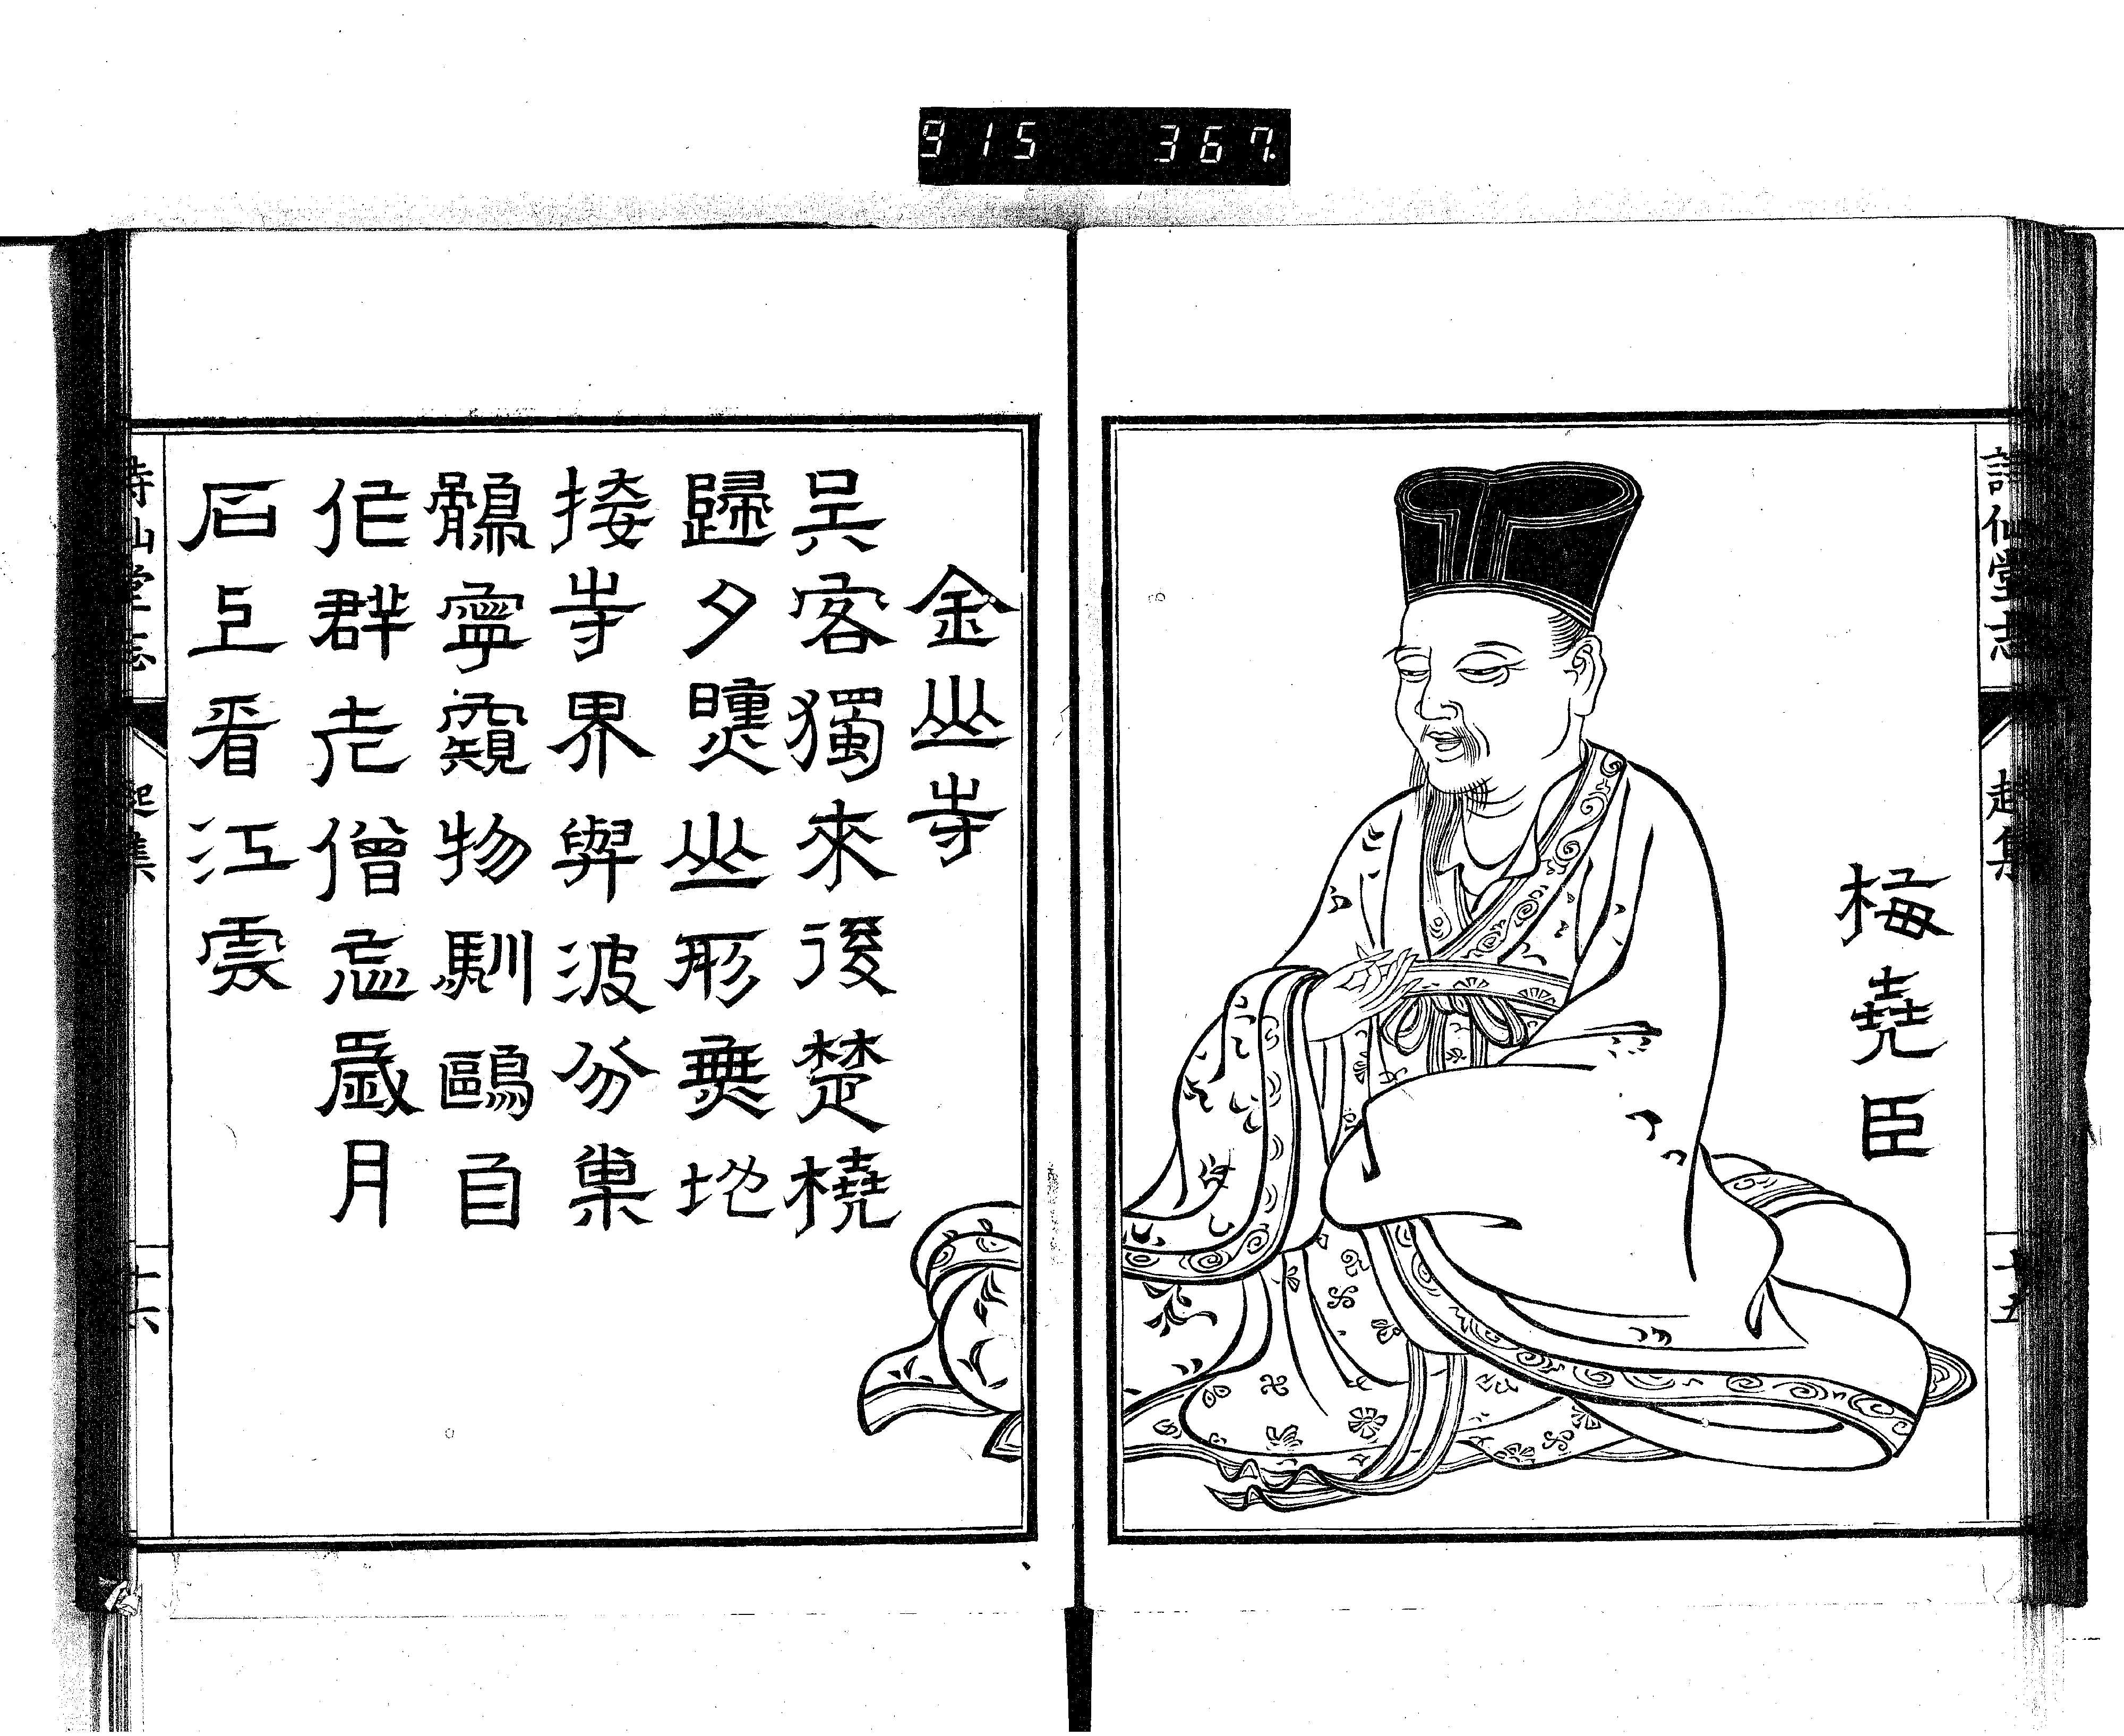 915 367
詩仙堂志
起集
十五
梅堯臣
金山寺
吳客獨來後楚橈
歸夕曛山形無地
接寺界與波分巢
鶻寧窺物馴鷗自
作群老僧忘歲月
石上看江雲
詩仙堂志
起集
十六